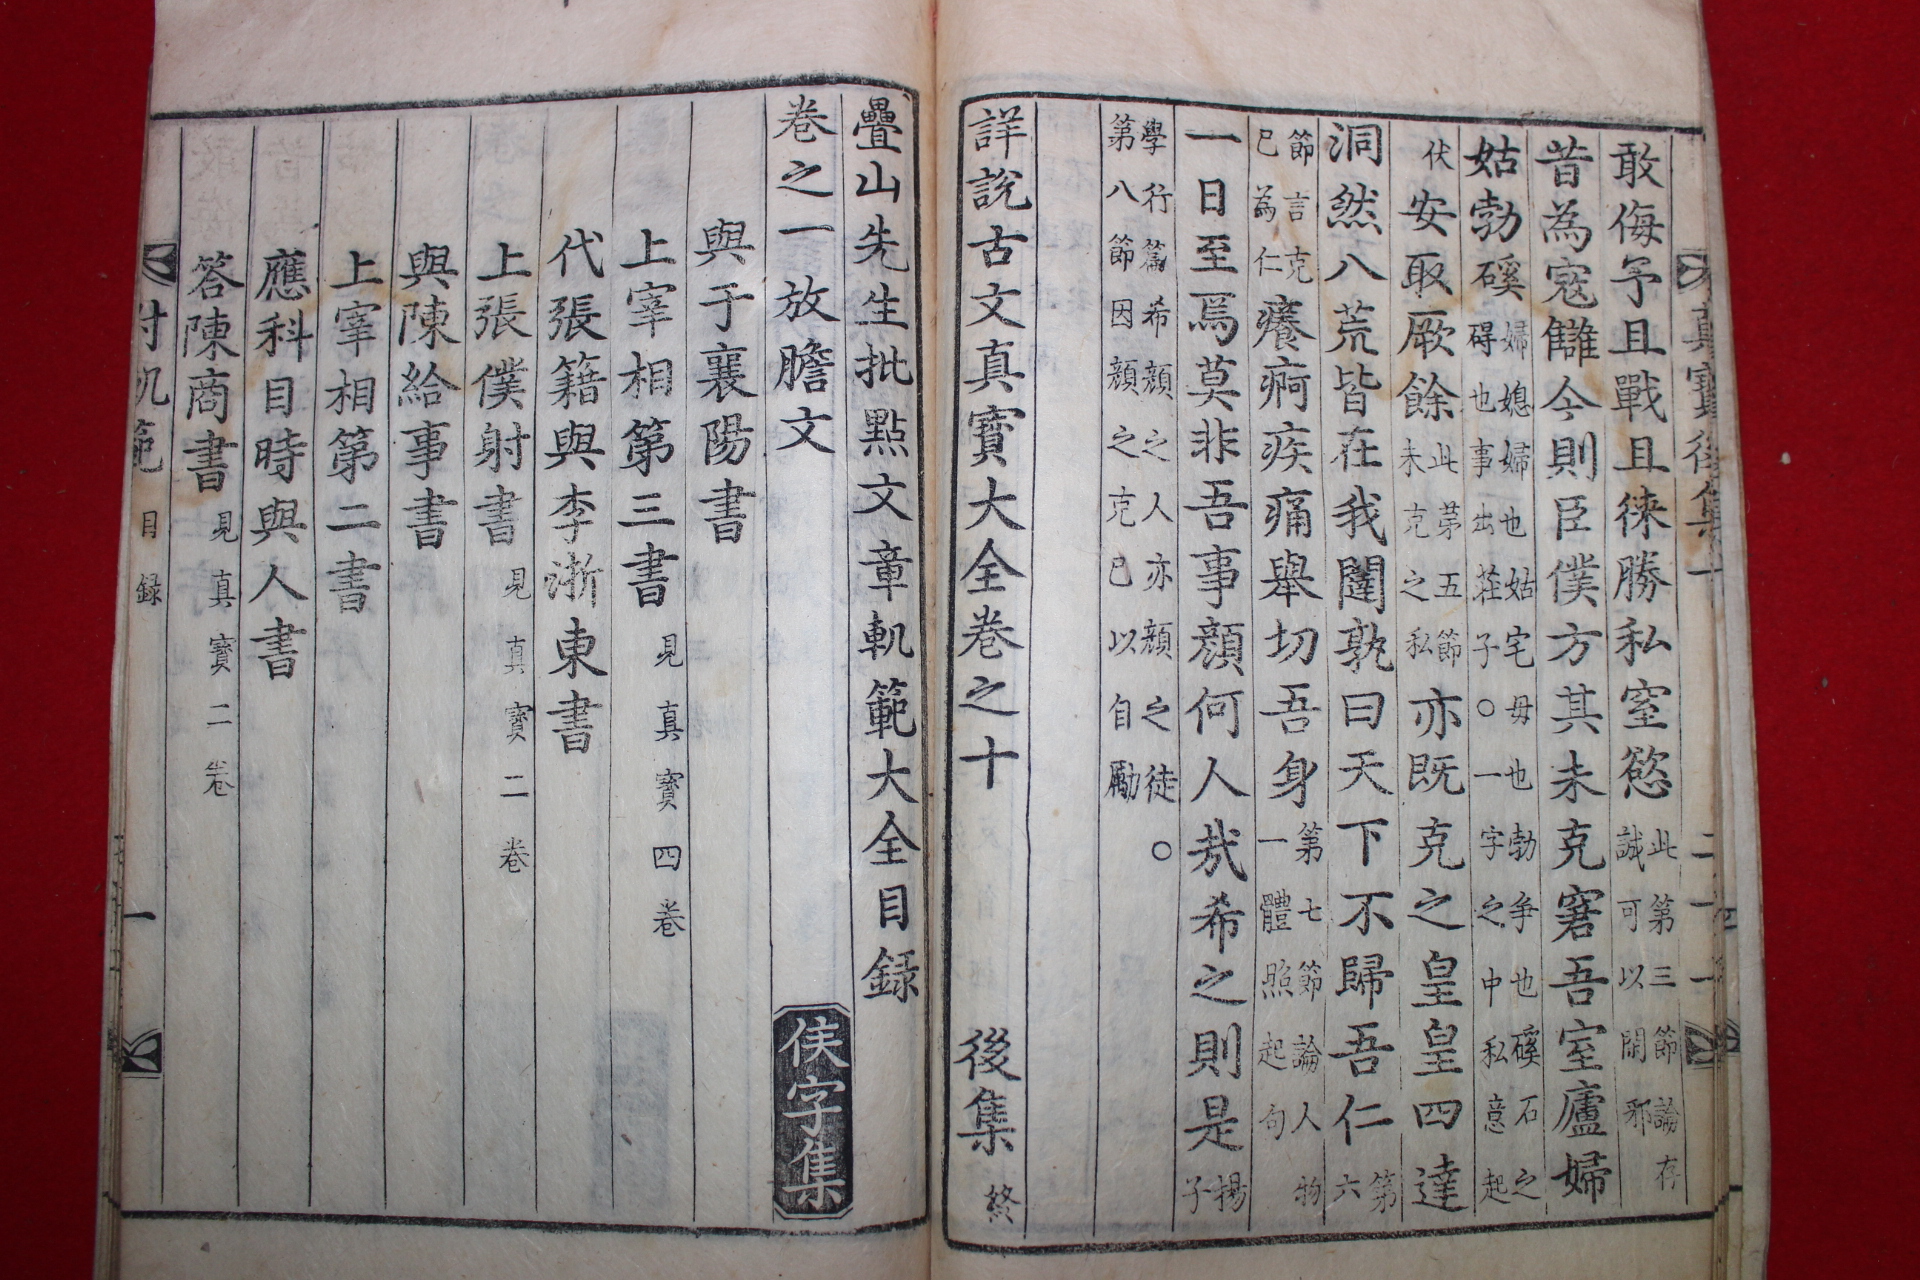 真寶後集十
敢侮予且戰且徠勝私窒慾此第三節論存誠可以閑邪
昔為寇讎今則臣僕方其未克窘吾室廬婦
姑勃磎婦媳婦也姑宅毋也勃争也磎石之碍也事出莊子○一字之中私意起
伏安取厥餘此苐五節未克之私亦既克之皇皇四達
洞然八荒皆在我闥孰曰天下不歸吾仁第六
節言克己為仁癢痾疾痛舉切吾身第七節論人物一體照起句
一日至焉莫非吾事顔何人㢤希之則是揚子
學行篇希顔之人亦顔之徒○第八節因顔之克己以自勵
詳說古文真寶大全卷之十 後集 終
疊山先生批點文章軌範大全目録
卷之一 放膽文 侯字集
與于襄陽書
上宰相第三書 見真寶四卷
代張籍與李浙東書
上張僕射書 見真寶二卷
與陳給事書
上宰相第二書
應科目時與人書
答陳商書 見真寶二卷
目録 一